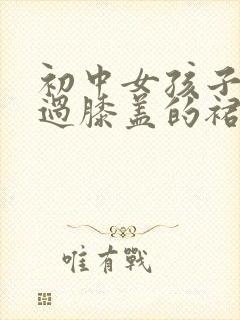 初中女孩子
过膝盖的裙
唯有戰